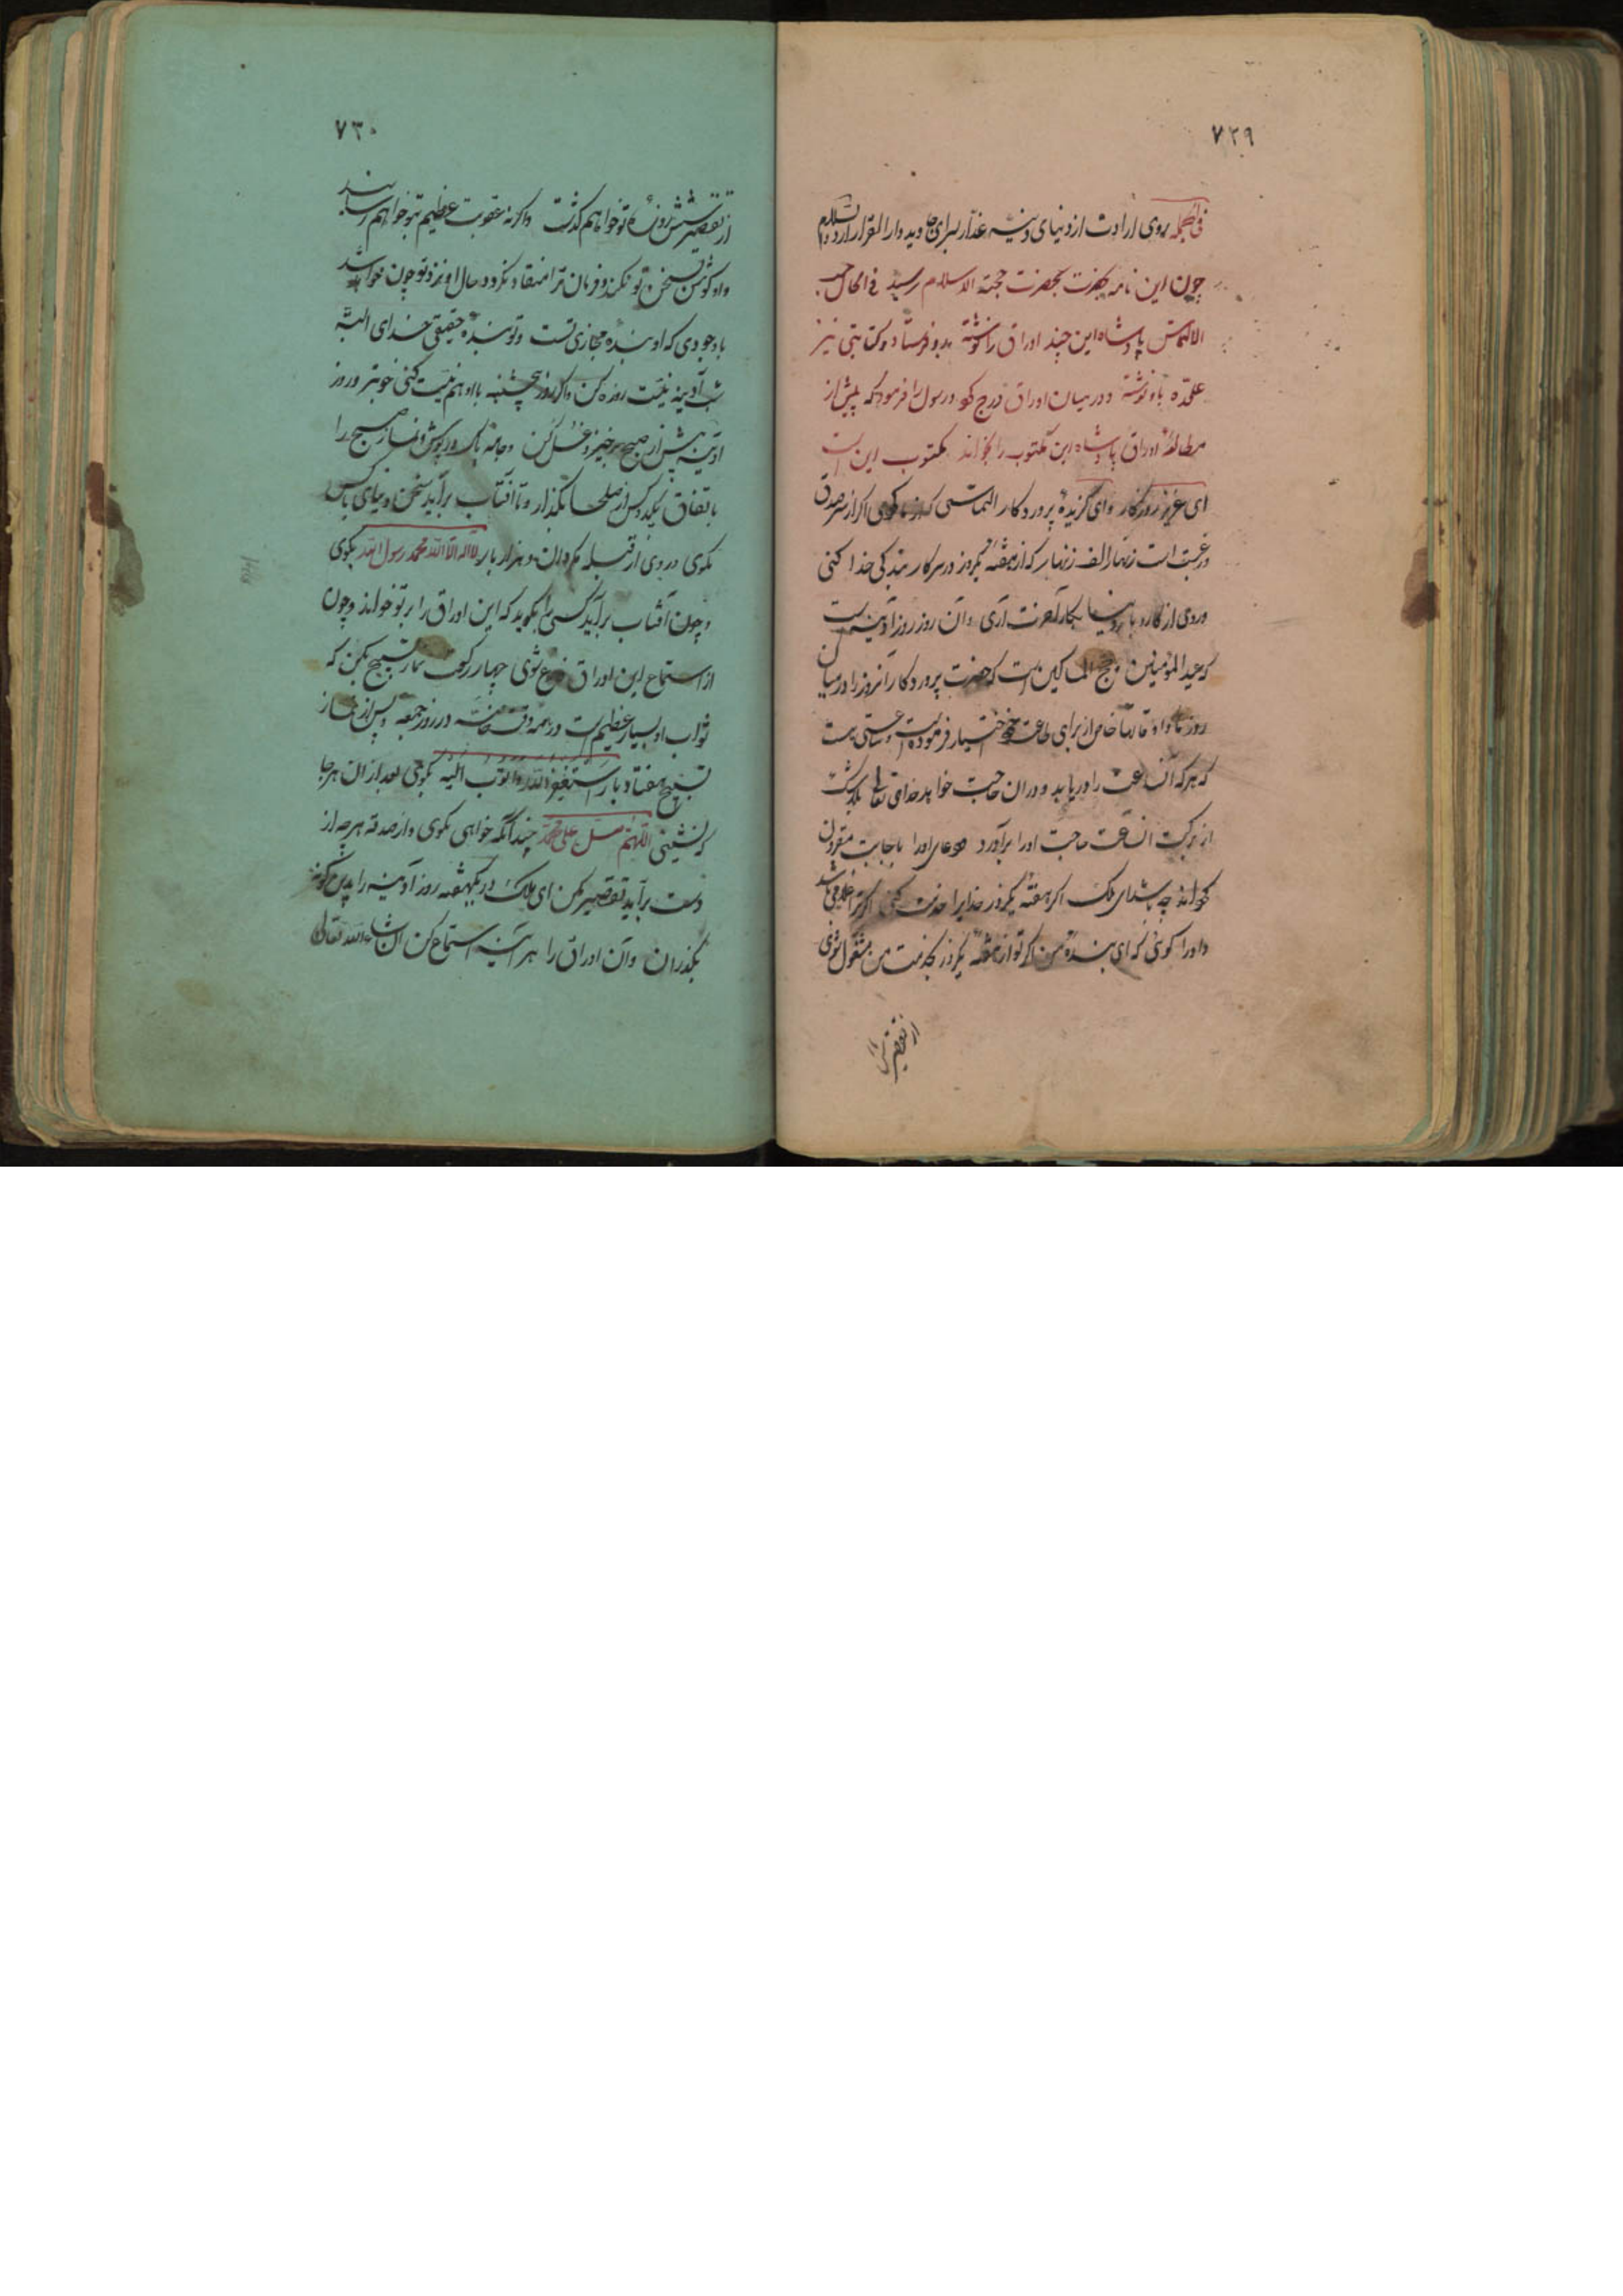 ٧٢٩
فی الجمله روی ارادت از دنیای دنیه غدار بسرای جاوید و دار القرار آرد والسلام
چون این نامه بحضرت حجة الاسلام رسید فی الحال حسب
الالتماس پادشاه این چند اوراق را نوشته بدو فرستاد و کتابتی نیز
علیحده باو نوشته و در میان اوراق درج کرد و رسول را فرمود که پیش از
مطالعهٔ اوراق پادشاه این مکتوب را بخواند مکتوب این است
ای عزیز روزگار و ای گزیدهٔ پروردگار التماسی که از ما کردی اگر از سر صدق
و رغبت است زنهار الف زنهار که از هفتهٔ یکروز در سر کار بندگی خدا کنی
و روی از کار و بار دنیا بکار آخرت آری و آن روز روز آدینه است
که عید المؤمنین و حج المساکین است که حضرت پروردگار آنروز را در میان
روزها و اوقاتها خاص از برای طاعت خود اختیار فرموده است و ساعتی هست
که هرکه آن ساعت را دریابد و در آن حاجت خواهد خدای تعالی بیشک
از برکت آن ساعت حاجت او را برآورد و دعای او را باجابت مقرون
گرداند چه باشد ای ملک اگر هفتهٔ یکروز خدایرا خدمت کنی اگر ترا غلامی باشد
و او را گوئی که ای بندهٔ من اگر تو از هفتهٔ یکروز بخدمت من مشغول شوی
از تقصیر شش
٧٣٠
از تقصیر شش روزهٔ تو خواهم گذشت و اگر نه عقوبت عظیم بتو خواهم رسانید
و او گوش بسخن تو نکند و فرمان ترا منقاد نگردد حال او نزد تو چون خواهد
با وجودی که او بندهٔ مجازی تست و تو بندهٔ حقیقی خدای البته
شب آدینه نیت روزه کن و اگر روز پنجشنبه با او هم نیت کنی خوبتر و روز
آدینه پیش از صبح برخیز و غسل کن و جامه پاک در پوش و نماز صبح را
باتفاق یکدو کس از صلحا بگذار و تا آفتاب برآید سخن دنیای با کس
نگوی و روی از قبله مگردان و هزار بار لا اله الا الله محمد رسول الله بگوی
و چون آفتاب برآید کسی را بگوید که این اوراق را بر تو خواند و چون
از استماع این اوراق فارغ شوی چهار رکعت نماز تسبیح بکن که
ثواب او بسیار عظیم است در همه وقت خاصه در روز جمعه و پس از نماز
تسبیح هفتاد بار استغفر الله و اتوب الیه بگوی بعد از آن هر جا
که نشینی اللهم صل علی محمد چندانکه خواهی بگوی و از صدقه هر چه از
دست برآید تقصیر مکن ای ملک در یکهفته روز آدینه را بدین گونه
بگذران و آن اوراق را هر آدینه استماع کن ان شاء الله تعالی